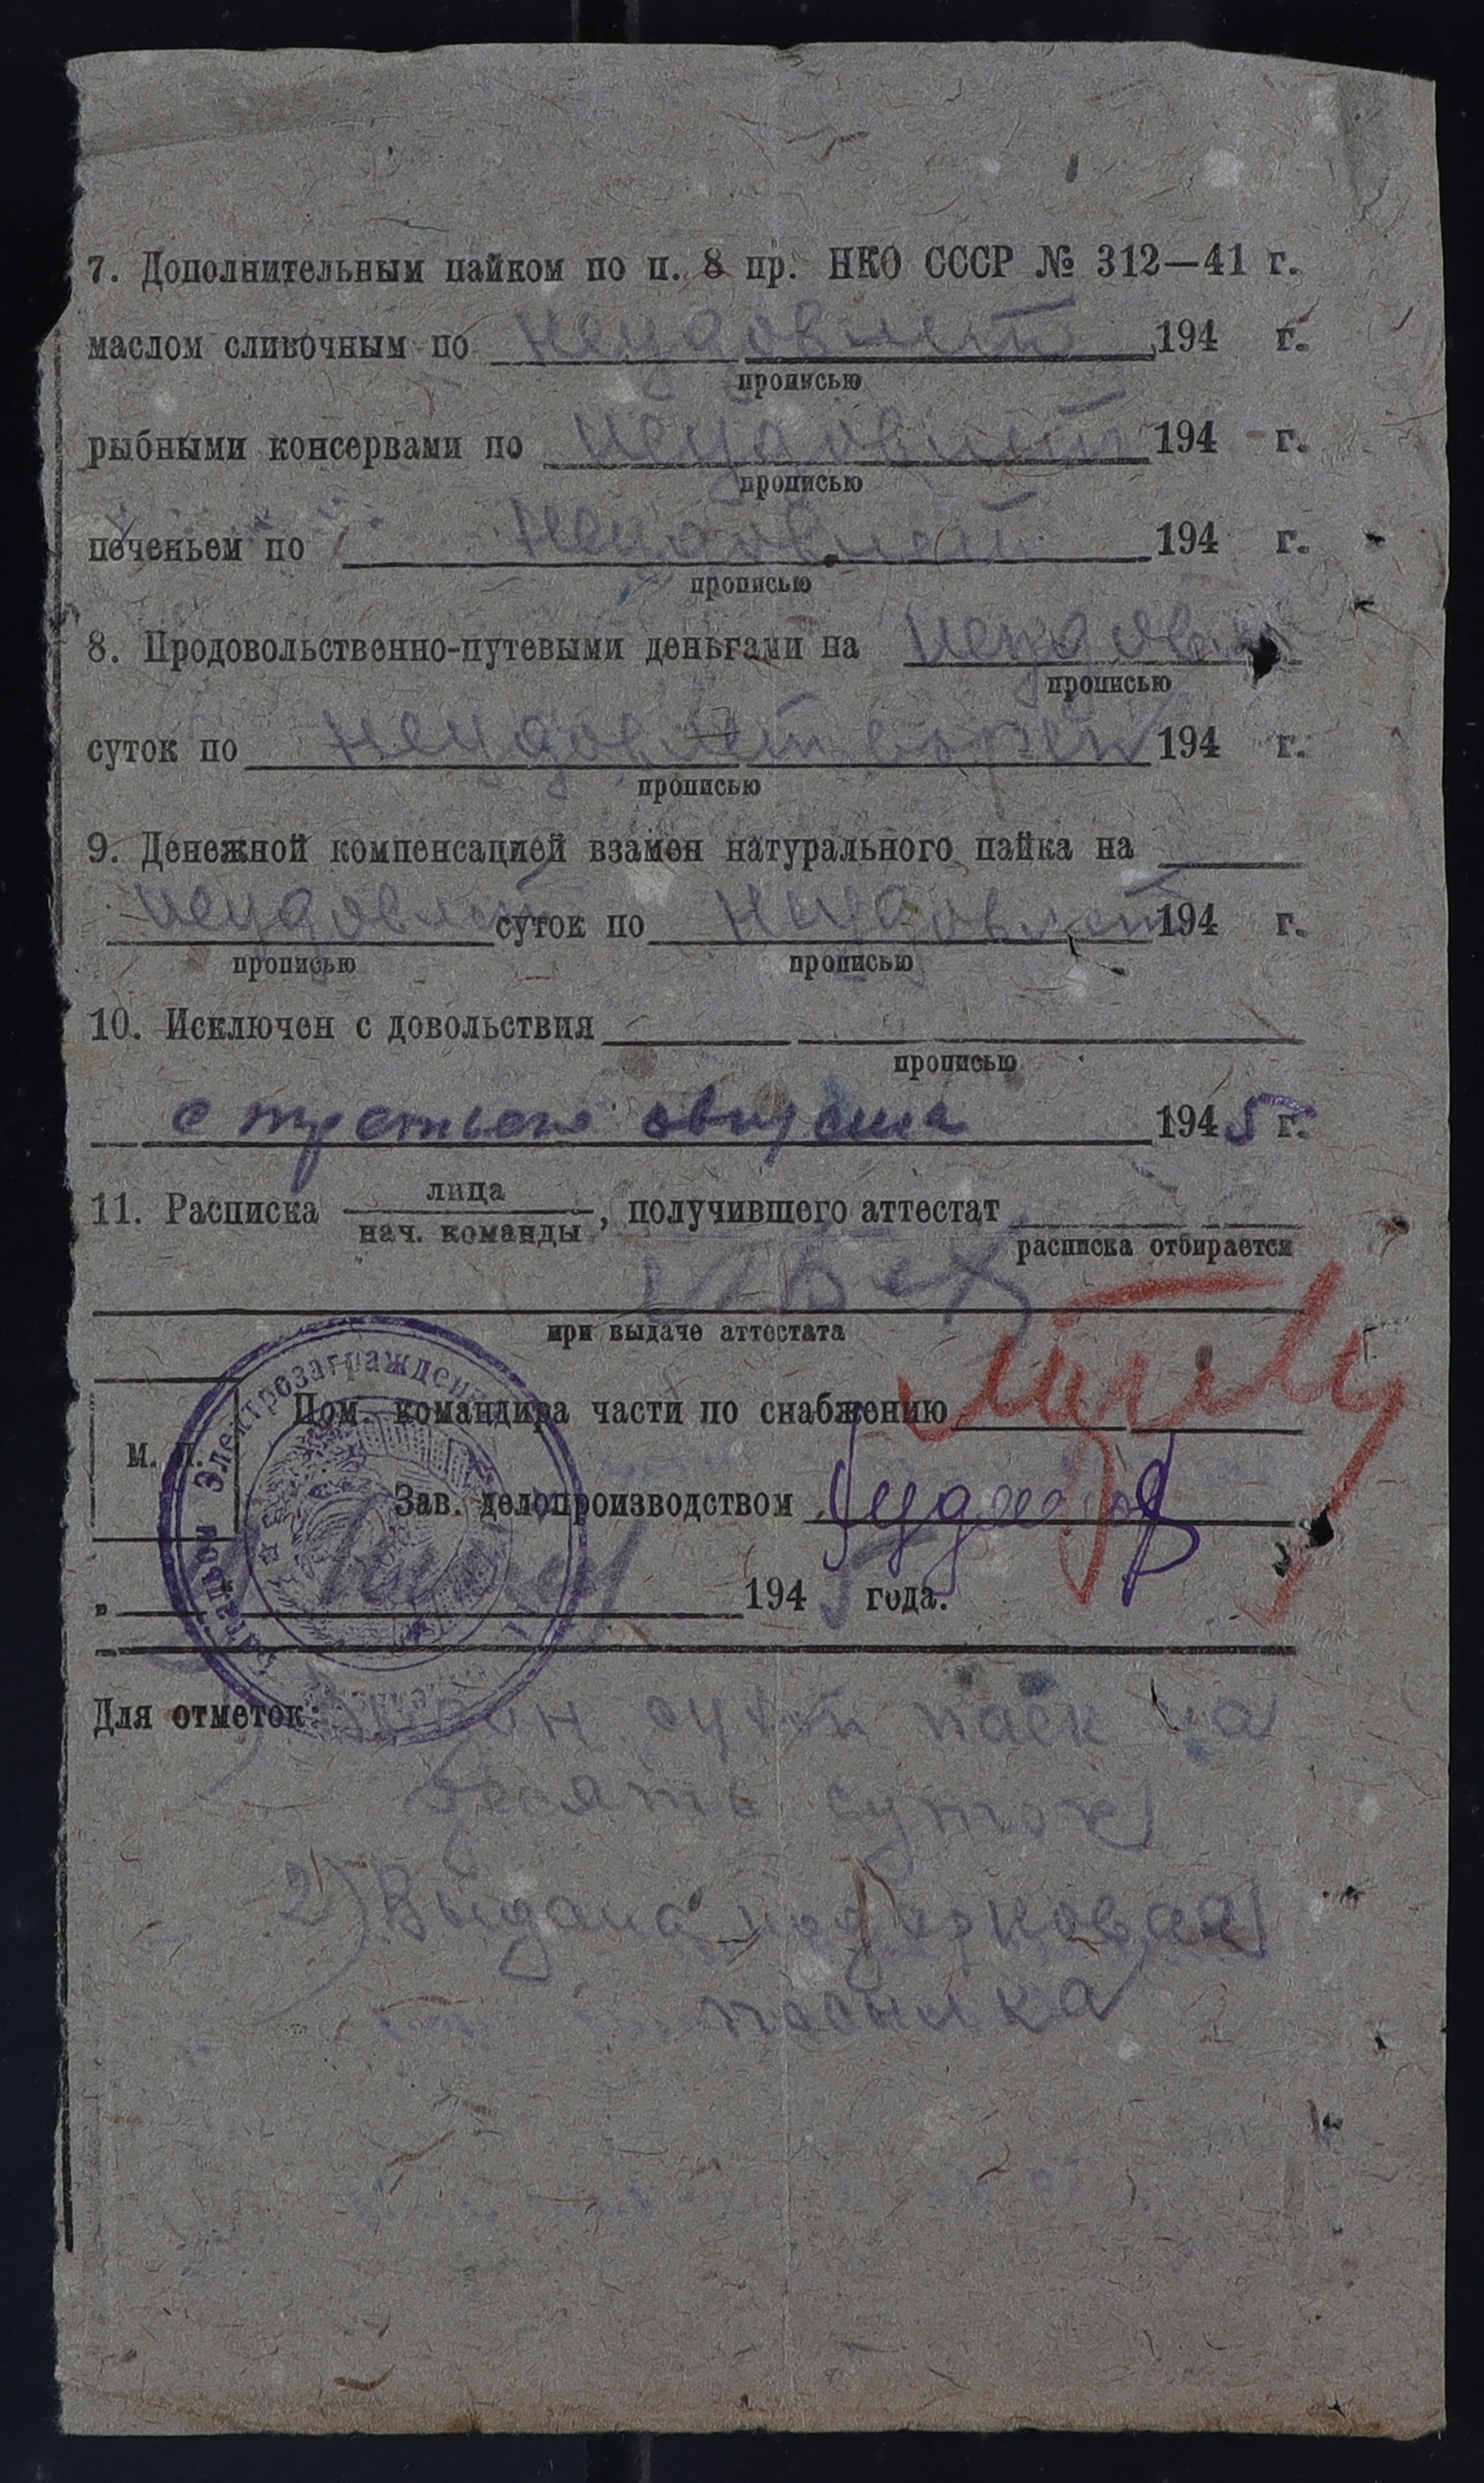 7. Дополнительным пайком по п. 8 пр. НКО СССР № 312—41 г.
маслом сливочным по неудовлет 194 г.
прописью
рыбными консервами по неудовлет 194 г.
прописью
печеньем по неудовлет 194 г.
прописью
8. Продовольственно-путевыми деньгами на неудовлет
прописью
суток по неудовлетворен 194 г.
прописью
9. Денежной компенсацией взамен натурального пайка на
неудовлет суток по неудовлет 194 г.
прописью прописью
10. Исключен с довольствия
прописью
с третьего августа 1945 г.
11. Расписка лица
нач. команды, получившего аттестат
расписка отбирается
при выдаче аттестата
Электрозаграждения
Пом. командира части по снабжению
М. П.
Зав. делопроизводством
„ 1945 года.
Для отметок: сухой паек на
десять суток
2) Выдана подарковая
посылка